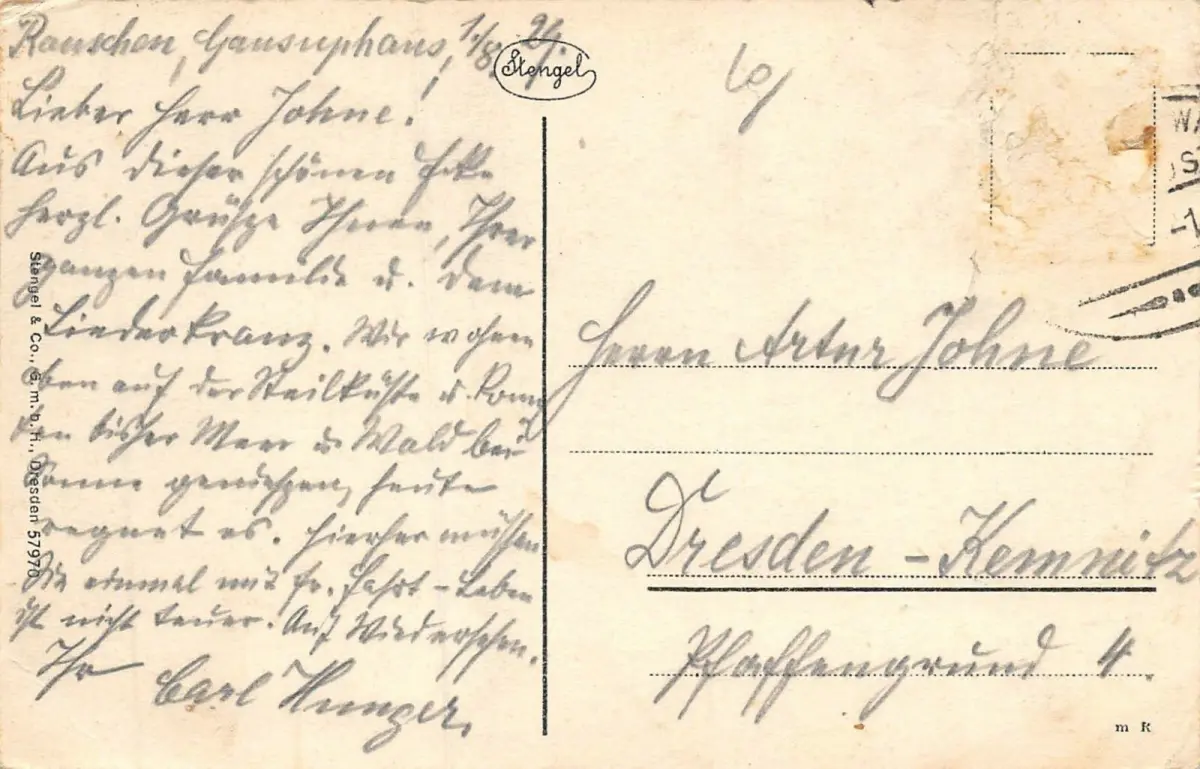 Rauschen, Gausuphaus, 1./8. 29.
Lieber Herr Johne!
Aus dieser schönen Ecke
herzl. Grüße Ihnen, Ihrer
ganzen Familie u. dem
Liederkranz. Wir wohnen
oben auf der Steilküste u. konn
ten bisher Meer u. Wald bei
Sonne genießen, heute
regnet es. Hierher müssen
Sie einmal mit fr. Fahrt – Leben
ist nicht teuer. Auf Wiedersehen.
Ihr Carl Hunger.
Stengel
Stengel & Co., G.m.b.H., Dresden 57970
Herrn Artur Johne
Dresden - Kemnitz
Pfaffengrund 4.
m R